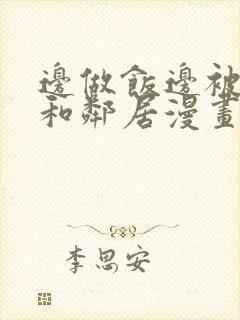 邊做飯邊被
和鄰居漫畫
李思安